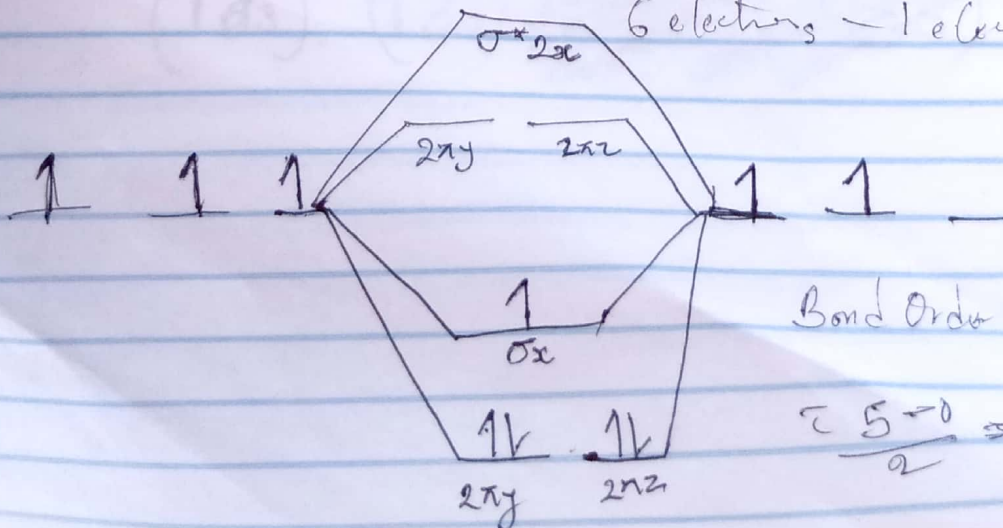 6 electrons – 1 elec
σ* 2x
2πy 2πz
1 1 1 1 1
1
σx
Bond Order
= 5-0 =
2
1L 1L
2πy 2πz